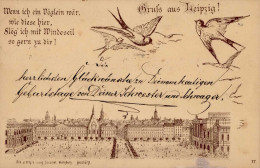 Wenn ich ein Vöglein wär,
wie diess hier,
Flög ich mit Windeseil
so gern zu dir!
Gruss aus Leipzig!
herzlichsten Glückwunsch zu Deinem heutigen
Geburtstage von Deiner Schwester und Schwager.